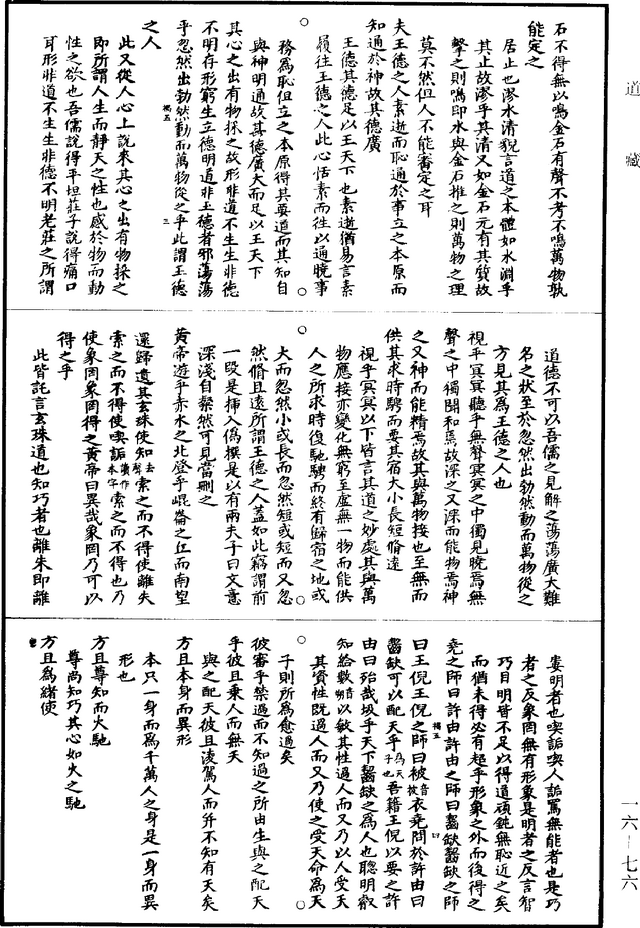 道藏
石不得無以鳴金石有聲不考不鳴萬物孰
能定之
居止也漻水清貌言道之本體如水淵乎
其止故漻乎其清又如金石元有其質故
擊之則鳴印水與金石推之則萬物之理
莫不然但人不能審定之耳
夫王德之人素逝而恥通於事立之本原而
知通於神故其德廣
王德其德足以王天下也素逝猶易言素
履往王德之人此心恬素而往以通曉事
務為恥但立之本原得其要道而其知自
與神明通故其德廣大而足以王天下
其心之出有物採之故形非道不生生非德
不明存形窮生立德明道非王德者邪蕩蕩
乎忽然出勃然動而萬物從之乎此謂王德
之人
此又從人心上說來其心之出有物採之
即所謂人生而靜天之性也感於物而動
性之欲也吾儒說得平坦莊子說得痛口
耳形非道不生生非德不明老莊之所謂
道德不可以吾儒之見解之蕩蕩廣大難
名之狀至於忽然出勃然動而萬物從之
方見其為王德之人也
視乎冥冥聽乎無聲冥冥之中獨見曉焉無
聲之中獨聞和焉故深之又深而能物焉神
之又神而能精焉故其與萬物接也至無而
供其求時騁而要其宿大小長短脩遠
視乎冥冥以下皆言其道之妙處其與萬
物應接亦變化無窮至虛無一物而能供
人之所求時復馳騁而終有歸宿之地或
大而忽然小或長而忽然短或短而又忽
然脩且遠所謂王德之人蓋如此窮謂前
一段是插入偽撰是以有兩夫子曰文意
深淺自粲然可見當刪之
黃帝遊乎赤水之北登乎崐崙之丘而南望
還歸遺其玄珠使知去聲索之而不得使離朱
索之而不得使喫詬索之而不得也乃
使象罔象罔得之黃帝曰異哉象罔乃可以
得之乎
此皆託言玄珠道也知巧者也離朱即離
婁明者也喫詬喫人詬罵無能者也是巧
者之反象罔無有形象是明者之反言智
巧目明皆不足以得道頑鈍無恥近之矣
而猶未得必有超乎形象之外而後得之
堯之師曰許由許由之師曰齧缺齧缺之師
曰王倪王倪之師曰被音披衣堯問於許由曰
齧缺可以配天乎為天子也吾藉王倪以要之許
由曰殆哉圾乎天下齧缺之為人也聰明叡
知給數音朔以敏其性過人而又乃以人受天
其資性既過人而又乃使之受天命為天
子則所為愈過矣
彼審乎禁過而不知過之所由生與之配天
乎彼且乘人而無天
與之配天彼且淩駕人而并不知有天矣
方且本身而異形
本只一身而為千萬人之身是一身而異
形也
方且尊知而火馳
尊尚知巧其心如火之馳
方且為緒使
一六—七六